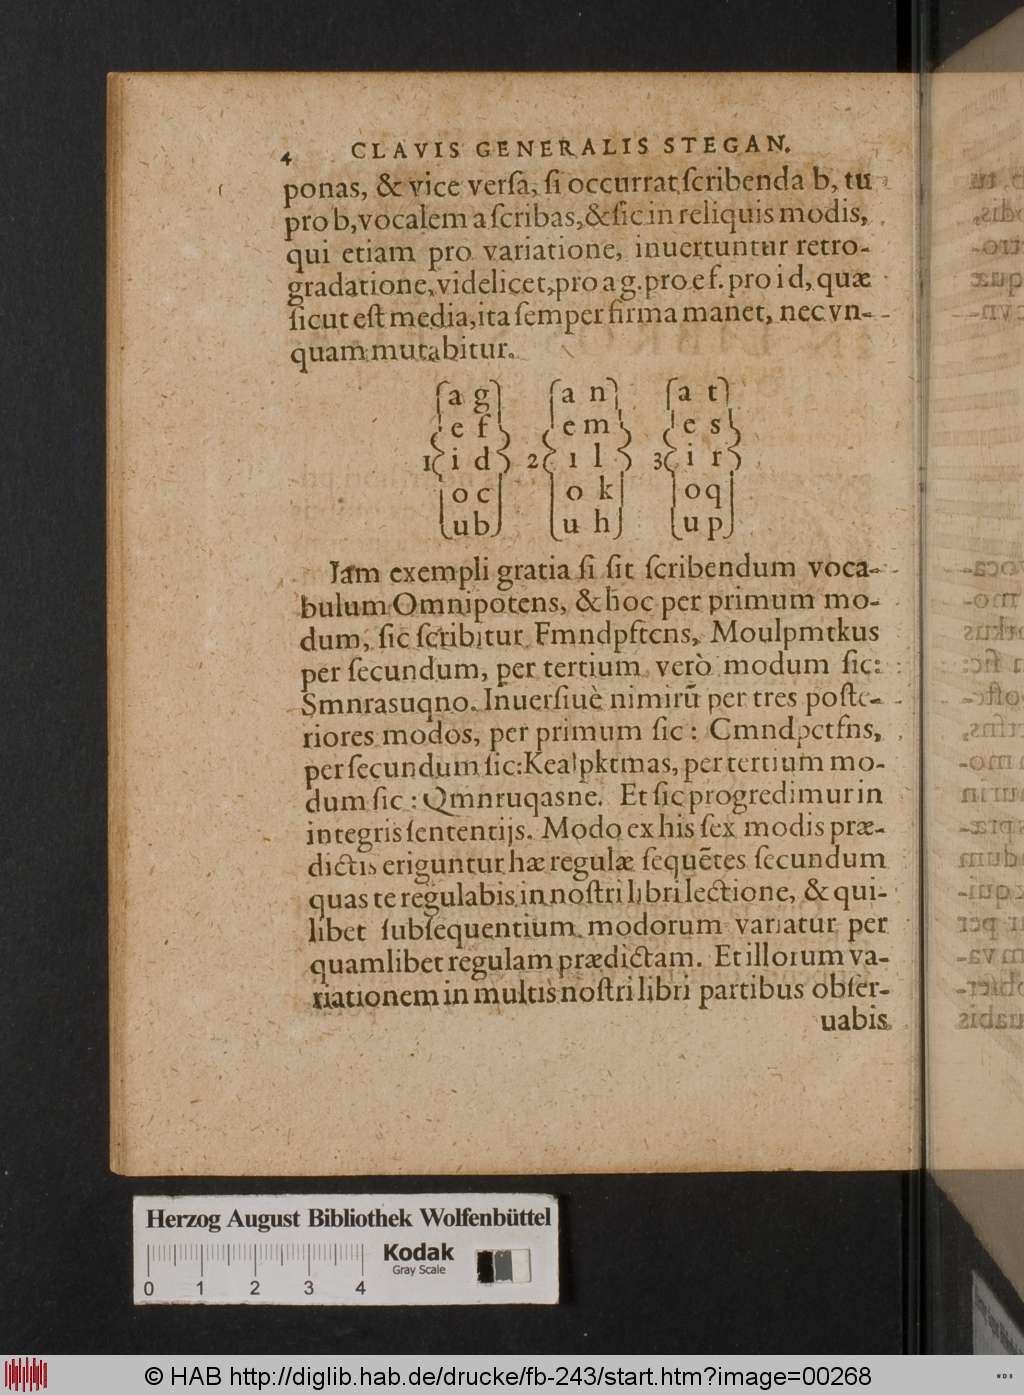 4 CLAVIS GENERALIS STEGAN.
ponas, & vice verſa, ſi occurrat ſcribenda b, tu
pro b, vocalem a ſcribas, & ſic in reliquis modis,
qui etiam pro variatione, inuertuntur retro-
gradatione, videlicet, pro a g. pro e f. pro i d, quæ
ſicut eſt media, ita ſemper firma manet, nec vn-
quam mutabitur.
a g a n a t
e f e m e s
1 i d 2 i l 3 i r
o c o k o q
u b u h u p
Iam exempli gratia ſi ſit ſcribendum voca-
bulum Omnipotens, & hoc per primum mo-
dum, ſic ſcribitur Emndpftcns, Moulpmtkus
per ſecundum, per tertium verò modum ſic:
Smnrasuqno. Inuerſiuè nimirū per tres poſte-
riores modos, per primum ſic: Cmndpctfns,
per ſecundum ſic: Kealpktmas, per tertium mo-
dum ſic: Qmnruqasne. Et ſic progredimur in
integris ſententijs. Modo ex his ſex modis præ-
dictis eriguntur hæ regulæ ſequētes ſecundum
quas te regulabis in noſtri libri lectione, & qui-
libet ſubſequentium modorum variatur per
quamlibet regulam prædictam. Et illorum va-
riationem in multis noſtri libri partibus obſer-
uabis
Herzog August Bibliothek Wolfenbüttel
Kodak
Gray Scale
0 1 2 3 4
© HAB http://diglib.hab.de/drucke/fb-243/start.htm?image=00268